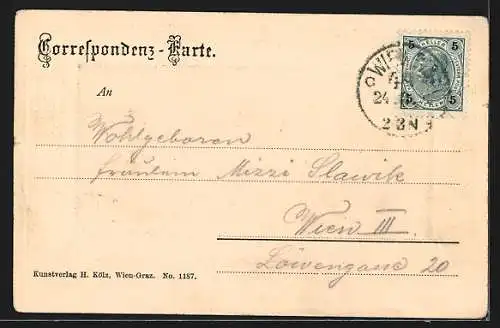 Correspondenz-Karte.
5 HELLER 5
WIEN
An
24
5 5
2 8 N
Wohlgeboren
Fräulein Mizzi Slawik
Wien III
Löwengasse 20
Kunstverlag H. Kölz, Wien-Graz. No. 1187.